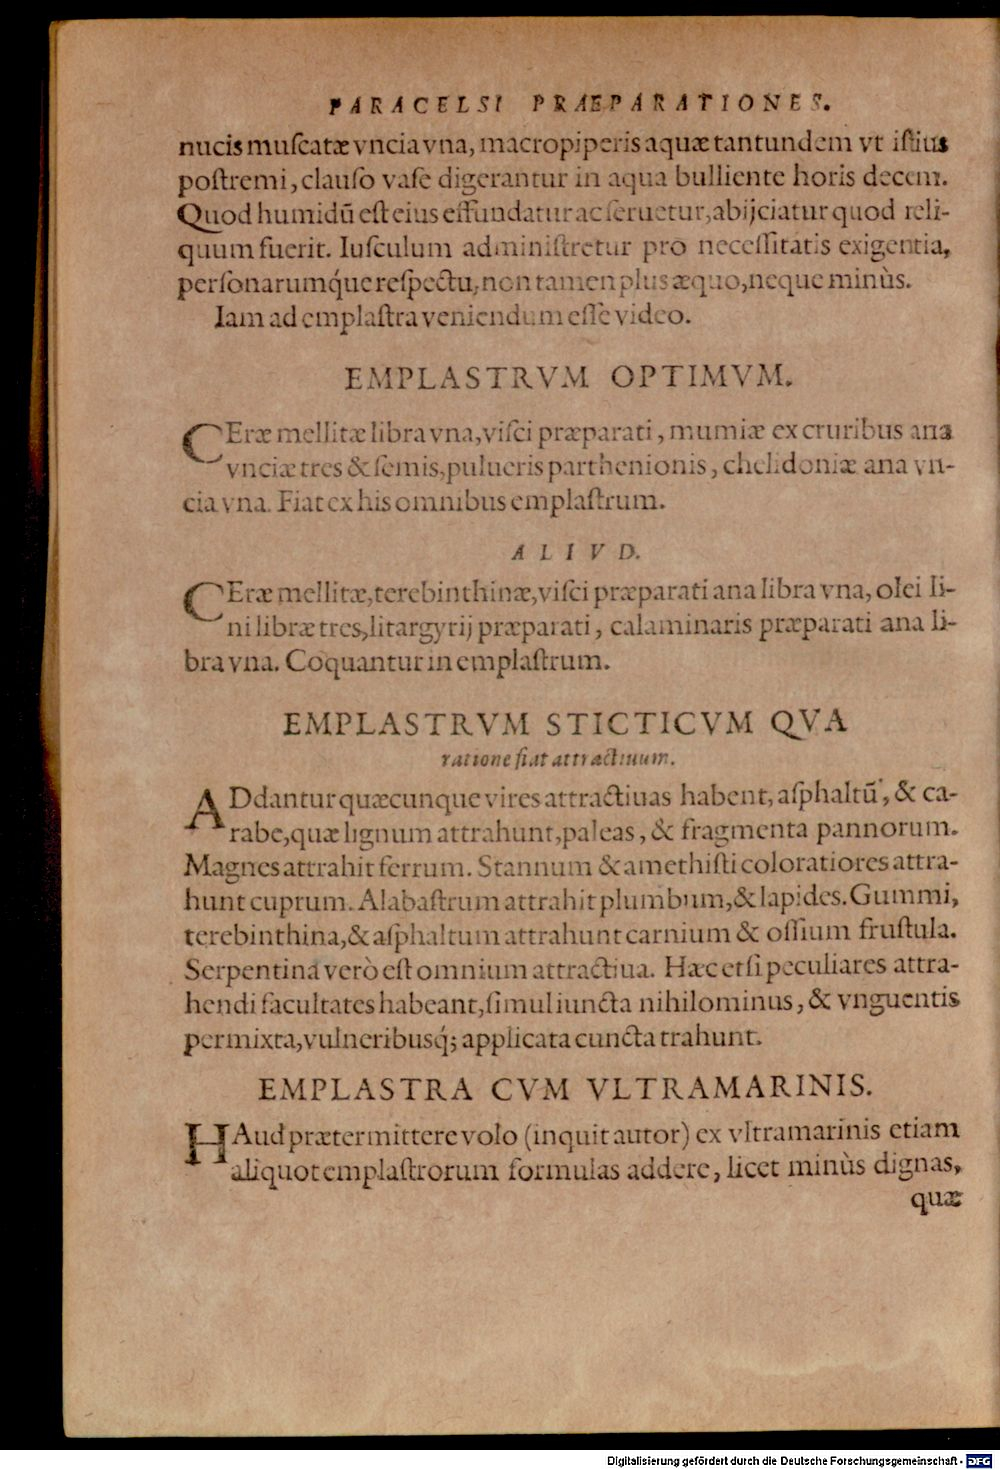 PARACELSI PRÆPARATIONES.
nucis muſcatæ vncia vna, macropiperis aquæ tantundem vt iſtius
poſtremi, clauſo vaſe digerantur in aqua bulliente horis decem.
Quod humidū eſt eius effundatur ac ſeruetur, abijciatur quod reli-
quum fuerit. Iuſculum adminiſtretur pro neceſſitatis exigentia,
perſonarumq́ue reſpectu, non tamen plus æquo, neque minùs.
Iam ad emplaſtra veniendum eſſe video.
EMPLASTRVM OPTIMVM.
CEræ mellitæ libra vna, viſci præparati, mumiæ ex cruribus ana
vnciæ tres & ſemis, pulueris parthenionis, chelidoniæ ana vn-
cia vna. Fiat ex his omnibus emplaſtrum.
ALIVD.
CEræ mellitæ, terebinthinæ, viſci præparati ana libra vna, olei li-
ni libræ tres, litargyrij præparati, calaminaris præparati ana li-
bra vna. Coquantur in emplaſtrum.
EMPLASTRVM STICTICVM QVA
ratione fiat attractiuum.
ADdantur quæcunque vires attractiuas habent, aſphaltū, & ca-
rabe, quæ lignum attrahunt, paleas, & fragmenta pannorum.
Magnes attrahit ferrum. Stannum & amethiſti coloratiores attra-
hunt cuprum. Alabaſtrum attrahit plumbum, & lapides. Gummi,
terebinthina, & aſphaltum attrahunt carnium & oſſium fruſtula.
Serpentina verò eſt omnium attractiua. Hæc etſi peculiares attra-
hendi facultates habeant, ſimul iuncta nihilominus, & vnguentis
permixta, vulneribusq́; applicata cuncta trahunt.
EMPLASTRA CVM VLTRAMARINIS.
HAud prætermittere volo (inquit autor) ex vltramarinis etiam
aliquot emplaſtrorum formulas addere, licet minùs dignas,
quæ
Digitalisierung gefördert durch die Deutsche Forschungsgemeinschaft - DFG